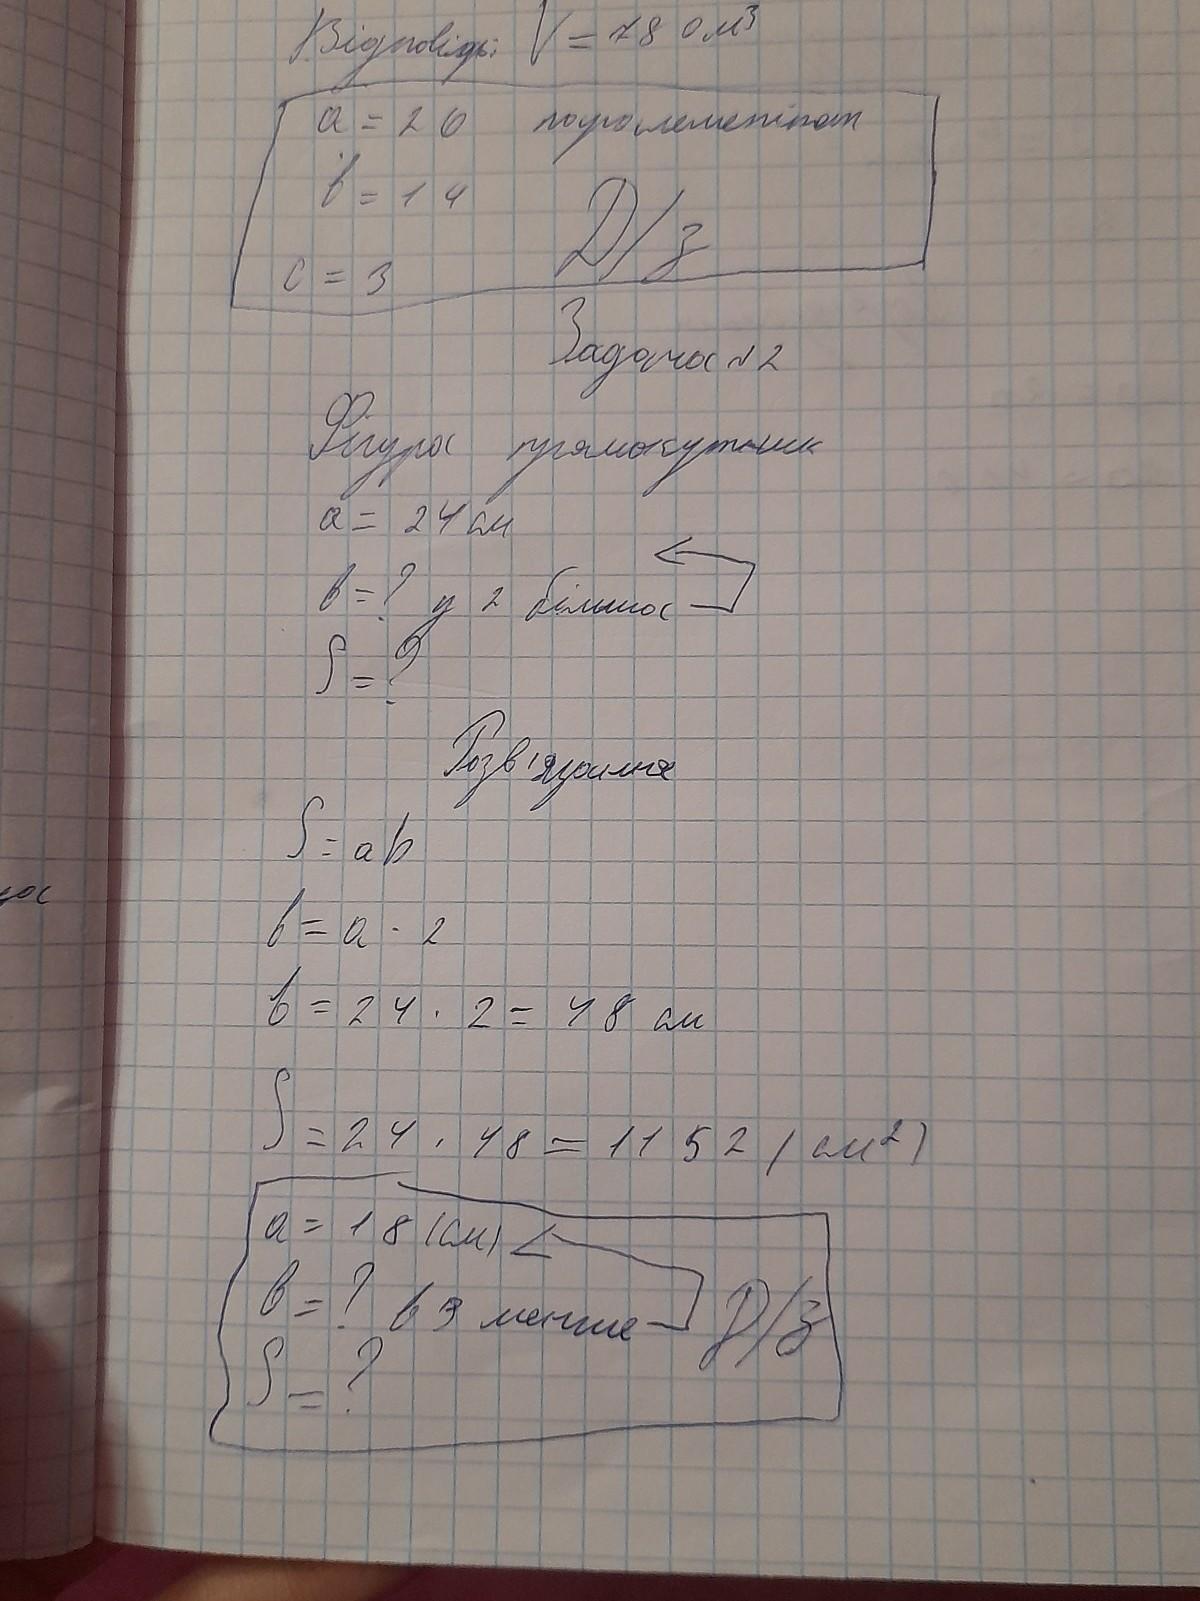 Відповідь: V = 780 м³
a = 20 паралелепіпед
b = 14
c = 3
Д/з
Задача №2
Фігура прямокутник
a = 24 см
b = ? у 2 більша
S = ?
Розв'язання
S = ab
b = a · 2
b = 24 · 2 = 48 см
S = 24 · 48 = 1152 (см²)
a = 18 (см)
b = ? в 3 менше Д/з
S = ?